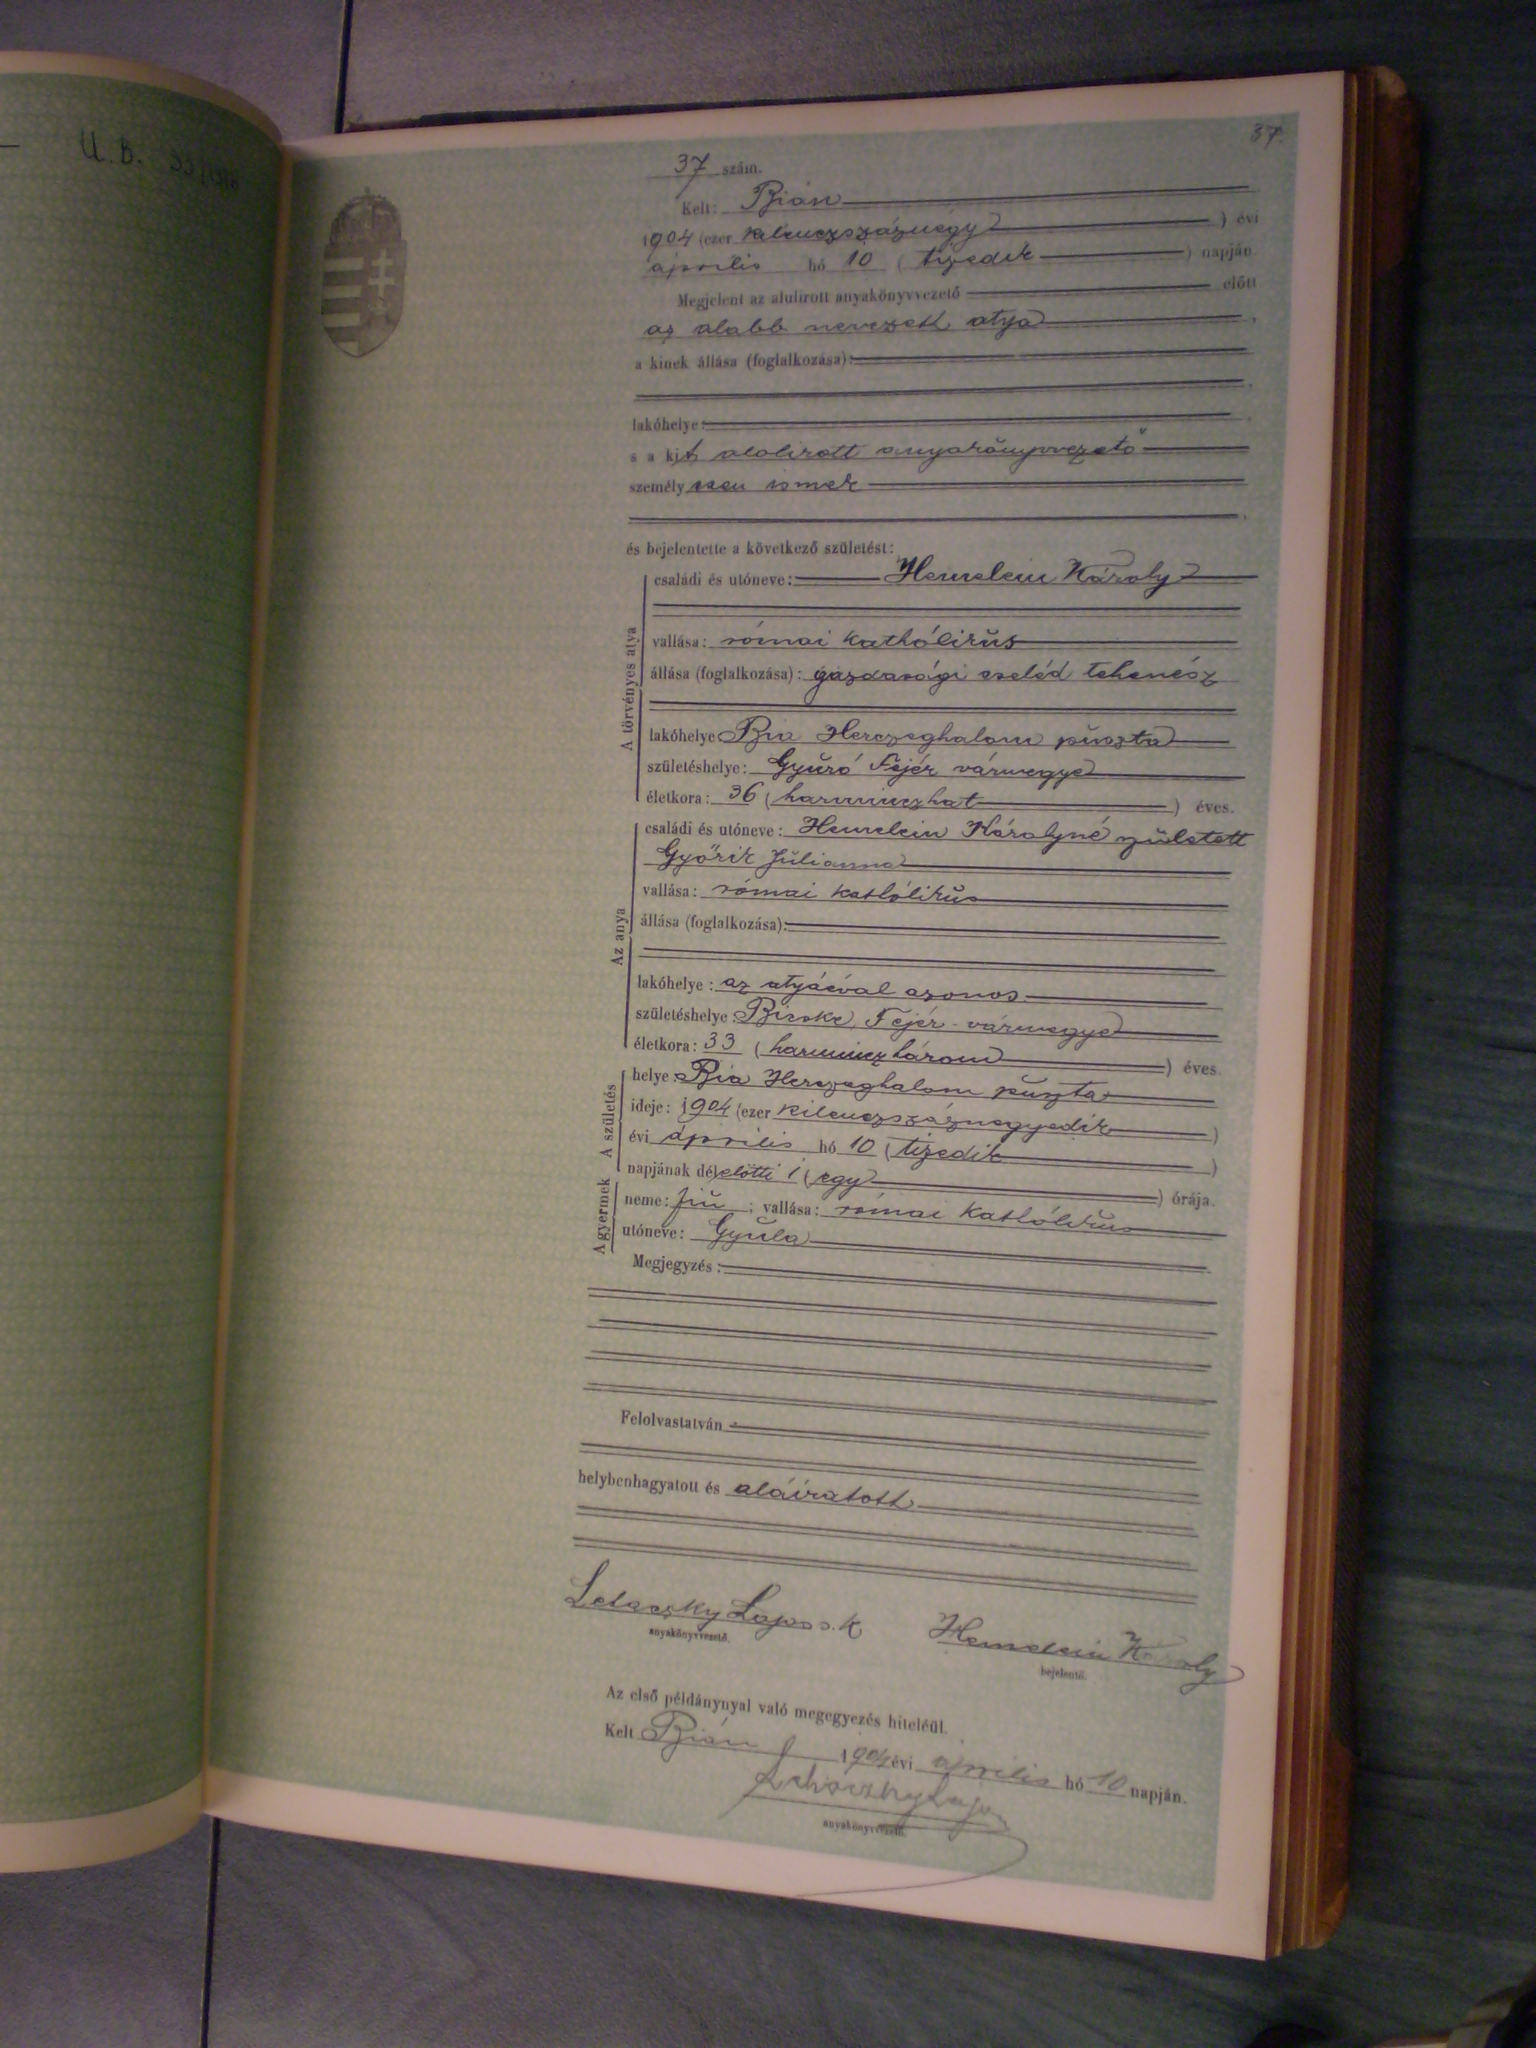 U. B.
37.
37 szám.
Kelt: Bián
1904 (ezer kilenczszáznégy) évi
április hó 10 (tizedik) napján
Megjelent az alulirott anyakönyvvezető előtt
az alább nevezett atya,
a kinek állása (foglalkozása):
lakóhelye:
s a kit alolirott anyakönyvvezető
személyesen ismer
és bejelentette a következő születést:
A törvényes atya
családi és utóneve: Hemelein Károly
vallása: római kathólikus
állása (foglalkozása): gazdasági cseléd tehenész
lakóhelye Bia Herczeghalom puszta
születéshelye: Gyúró Fejér vármegye
életkora: 36 (harminczhat) éves.
Az anya
családi és utóneve: Hemelein Károlyné született
Győrik Julianna
vallása: római kathólikus
állása (foglalkozása):
lakóhelye: az atyáéval azonos
születéshelye: Bicske, Fejér-vármegye
életkora: 33 (harminczhárom) éves.
A születés
helye: Bia Herczeghalom puszta
ideje: 1904 (ezer kilenczszáznegyedik)
évi április hó 10 (tizedik)
napjának délelőtti 1 (egy) órája.
A gyermek
neme: fiú; vallása: római kathólikus
utóneve: Gyula
Megjegyzés:
Felolvastatván
helybenhagyatott és aláiratott
Lajos s. k. Hemelein Károly
anyakönyvvezető. bejelentő.
Az első példánynyal való megegyezés hiteléül.
Kelt Bián 1904 évi április hó 10 napján.
Lajos
anyakönyvvezető.